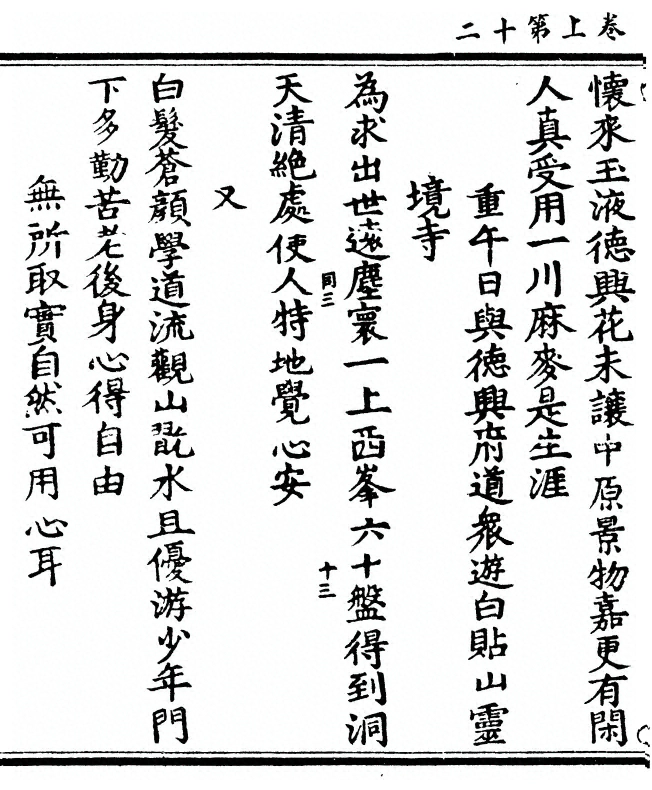 卷上第十二
懷來玉液德興花未讓中原景物嘉更有閑
人真受用一川麻麥是生涯
重午日與德興府道眾遊白貼山靈
境寺
為求出世遠塵寰一上西峯六十盤得到洞
同三
十三
天清絕處使人特地覺心安
又
白髮蒼顏學道流觀山翫水且優游少年門
下多勤苦老後身心得自由
無所取實自然可用心耳